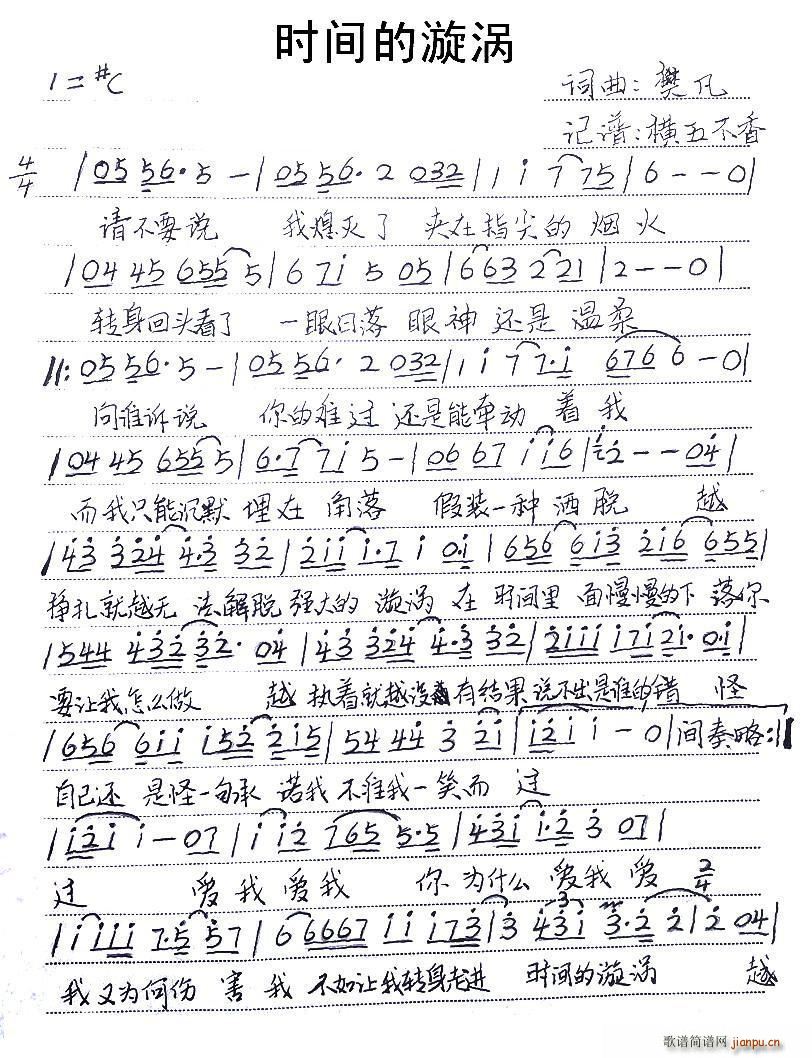 时间的漩涡
1=#C
词曲:樊凡
记谱:横五不香
4/4 |05 56·5-|05 56·2 032|1 i 7 775|6--0|
请不要说 我熄灭了 夹在指尖的烟火
|04 45 655 5|6 7i 5 05|663 2 21|2--0|
转身回头看了 一眼日落 眼神 还是 温柔
||:05 56·5-|05 56·2 032|1 i 7 7·i 6766-0|
问谁诉说 你的难过 还是能牵动 着我
|04 45 655 5|6·7 7i 5-|06 67 i i i6|2--04|
而我只能沉默 埋在 角落 假装一种 洒脱 越
|43 324 4·3 32|2ii i·7 i 0·i|656 6i3 2i6 655|
挣扎就越无 法解脱 强大的 漩涡 在 时间里 面慢慢的下 落你
|544 432 32· 04|43 324 4·3 32|2iii i7i 2i· 0i|
要让我怎么做 越 执着就越没有结果 说不出是谁的错 怪
|656 6ii i52 2i5|54 44 3 2i|i2i i-0|间奏略:||
自己还 是怪一句承 诺我 不准我一笑而 过
|i2i i-07|i i2 765 5·5|43i i·2 3 07|
过 爱我爱我 你为什么 爱我 爱 2/4
|i iii 7·5 57|6 6667 i i i73|3 43i 3·2 2|2 04|
我又为何伤 害 我 不如让我转身走进 时间的漩涡 越
歌谱简谱网
jianpu.cn